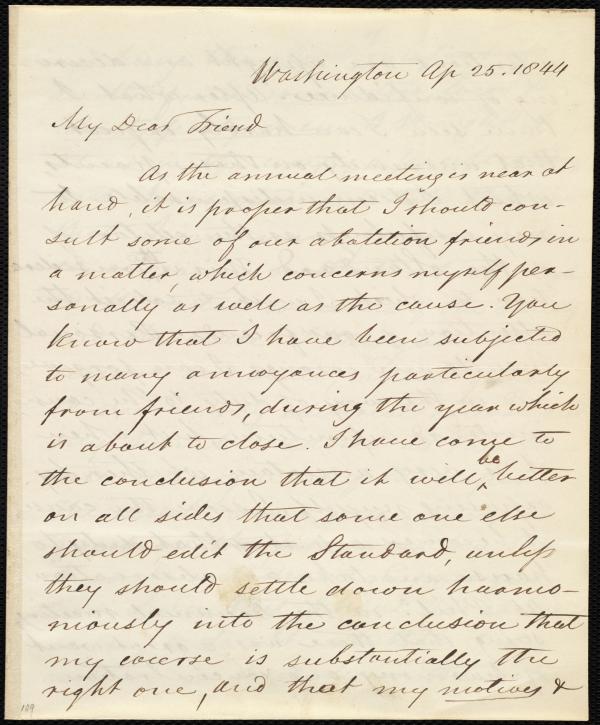 Washington Ap 25. 1844
My Dear Friend
As the annual meeting is near at
hand, it is proper that I should con-
sult some of our abolition friends in
a matter, which concerns myself per-
sonally as well as the cause. You
know that I have been subjected
to many annoyances particularly
from friends, during the year which
is about to close. I have come to
the conclusion that it will be better
on all sides that some one else
should edit the Standard, unless
they should settle down harmo-
niously into the conclusion that
my course is substantially the
right one, and that my motives &
109